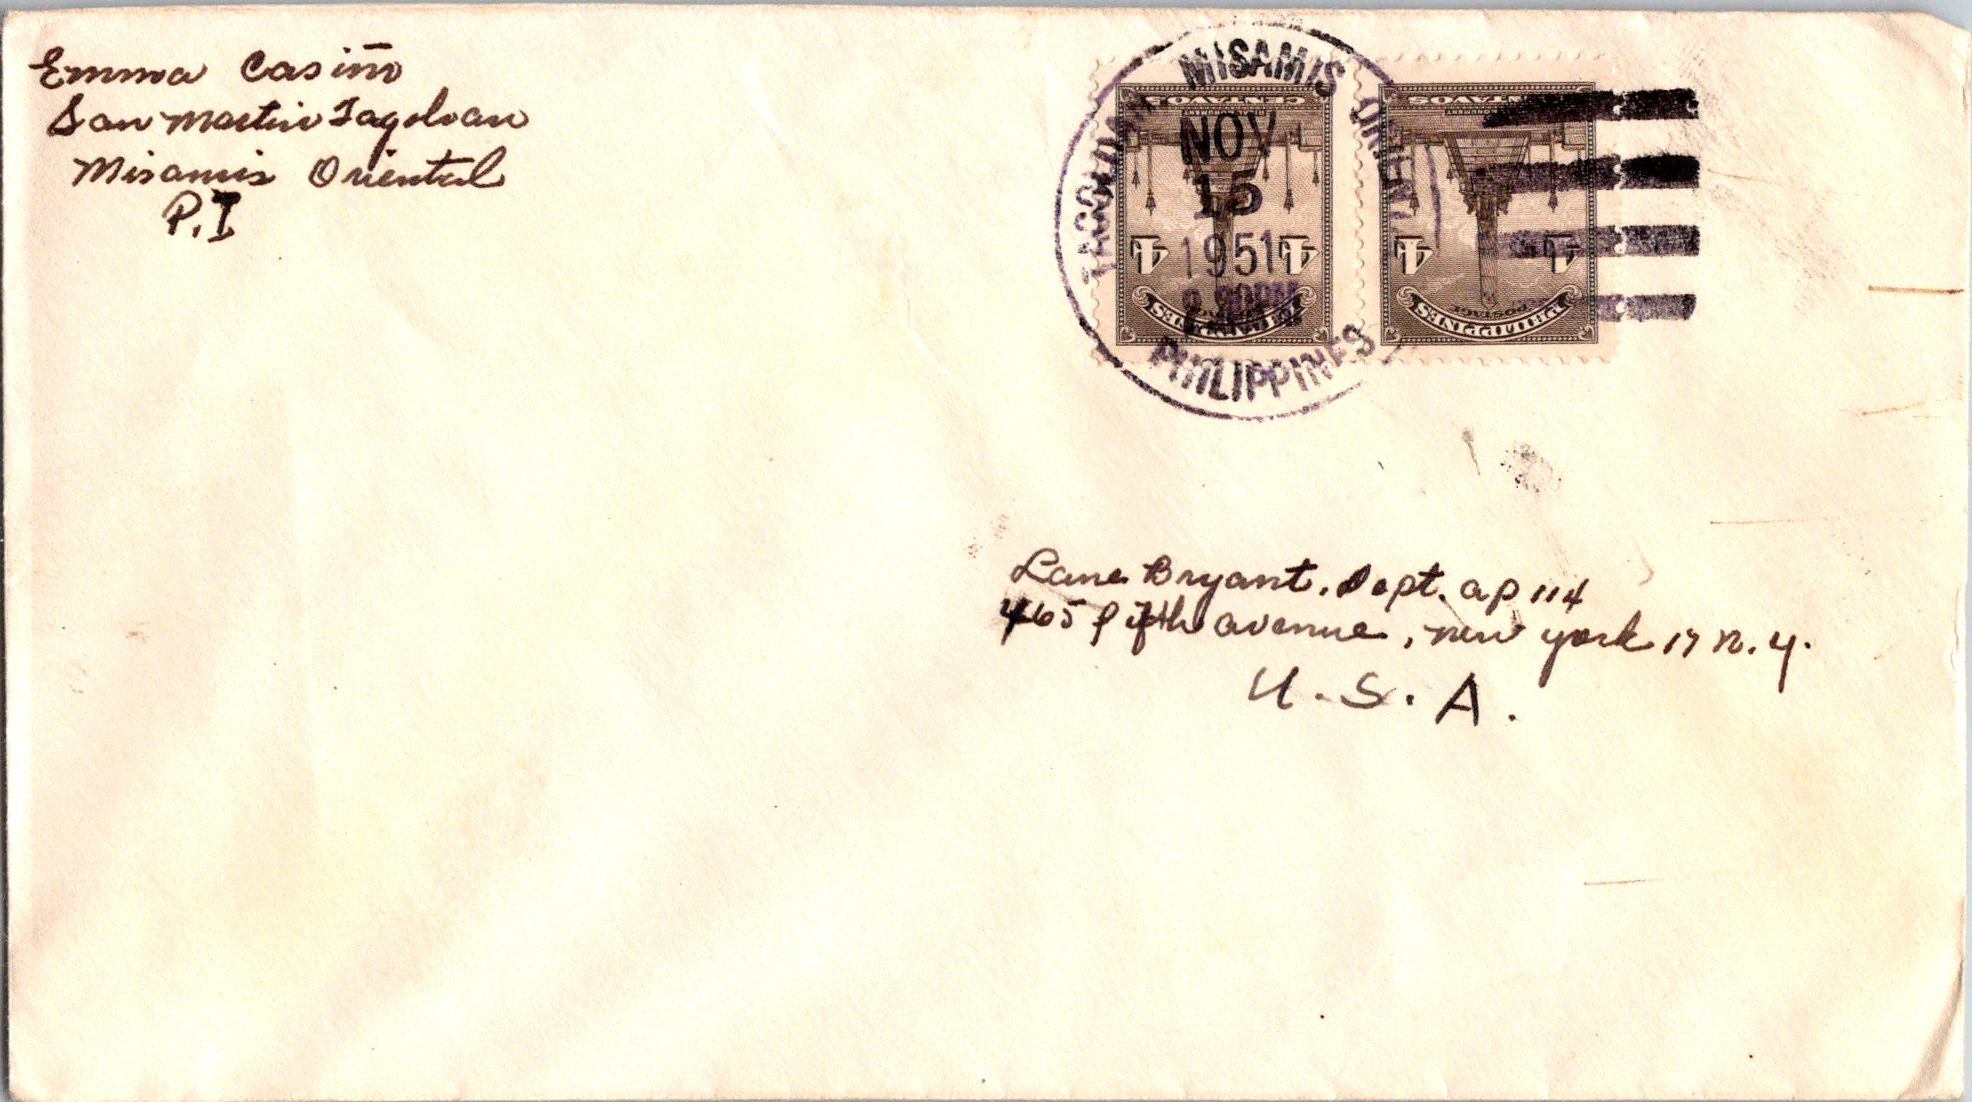 Emma Casiño
San Martin Tagoloan
Misamis Oriental
P.I
TAGOLOAN MISAMIS ORIENTAL
NOV
15
1951
PM
PHILIPPINES
CENTAVOS
4 4
PHILIPPINES
POSTAGE
CENTAVOS
4 4
PHILIPPINES
POSTAGE
Lane Bryant, Dept. ap 114
465 Fifth avenue, new york 17 n.y.
U.S.A.